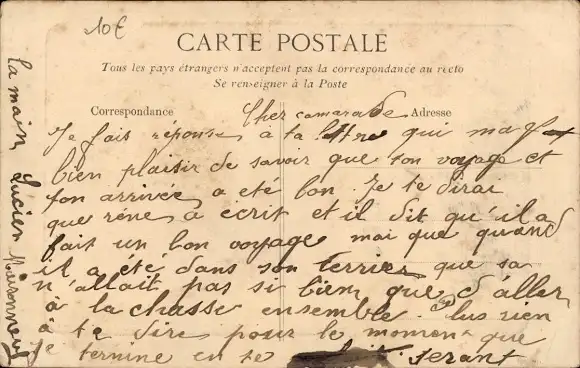 10€
CARTE POSTALE
Tous les pays étrangers n'acceptent pas la correspondance au recto
Se renseigner à la Poste
Correspondance
Adresse
Cher camarade
Je fais réponse à ta lettre qui ma fait
bien plaisir de savoir que ton voyage et
ton arrivée a été bon. Je te dirai
que réne à écrit et il dit qu'il a
fait un bon voyage mai que quand
il a été dans son terrier que sa
n'allait pas si bien que d'aller
à la chasse ensemble. Plus rien
à te dire pour le moment que
Je termine en te serant
la main Lucien Maisonneuf